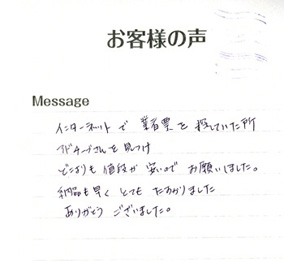 お客様の声
Message
インターネットで 業者を 探していた所
見つけ
どこよりも 価格が 安いので お願いしました。
納品も早く とても たすかりました
ありがとう ございました。